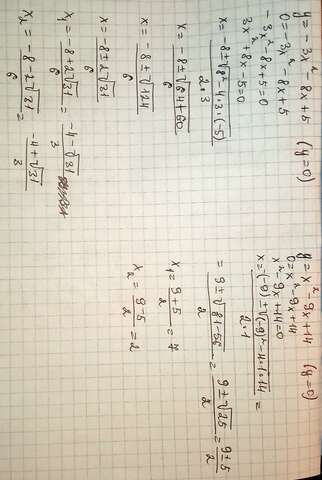 y = -3x² - 8x + 5 (y=0)
0 = -3x² - 8x + 5
-3x² - 8x + 5 = 0
3x² + 8x - 5 = 0
x = (-8 ± √(8² - 4·3·(-5)))/(2·3)
x = (-8 ± √(64+60))/6
x = (-8 ± √124)/6
x = (-8 ± 2√31)/6
x₁ = (-8 + 2√31)/6 = (-4 - √31)/3
x₂ = (-8 + 2√31)/6 = (-4 + √31)/3
y = x² - 9x + 14 (y=0)
0 = x² - 9x + 14
x² - 9x + 14 = 0
x = (-(-9) ± √((-9)² - 4·1·14))/(2·1) =
= (9 ± √(81-56))/2 = (9 ± √25)/2 = (9±5)/2
x₁ = (9+5)/2 = 7
x₂ = (9-5)/2 = 2